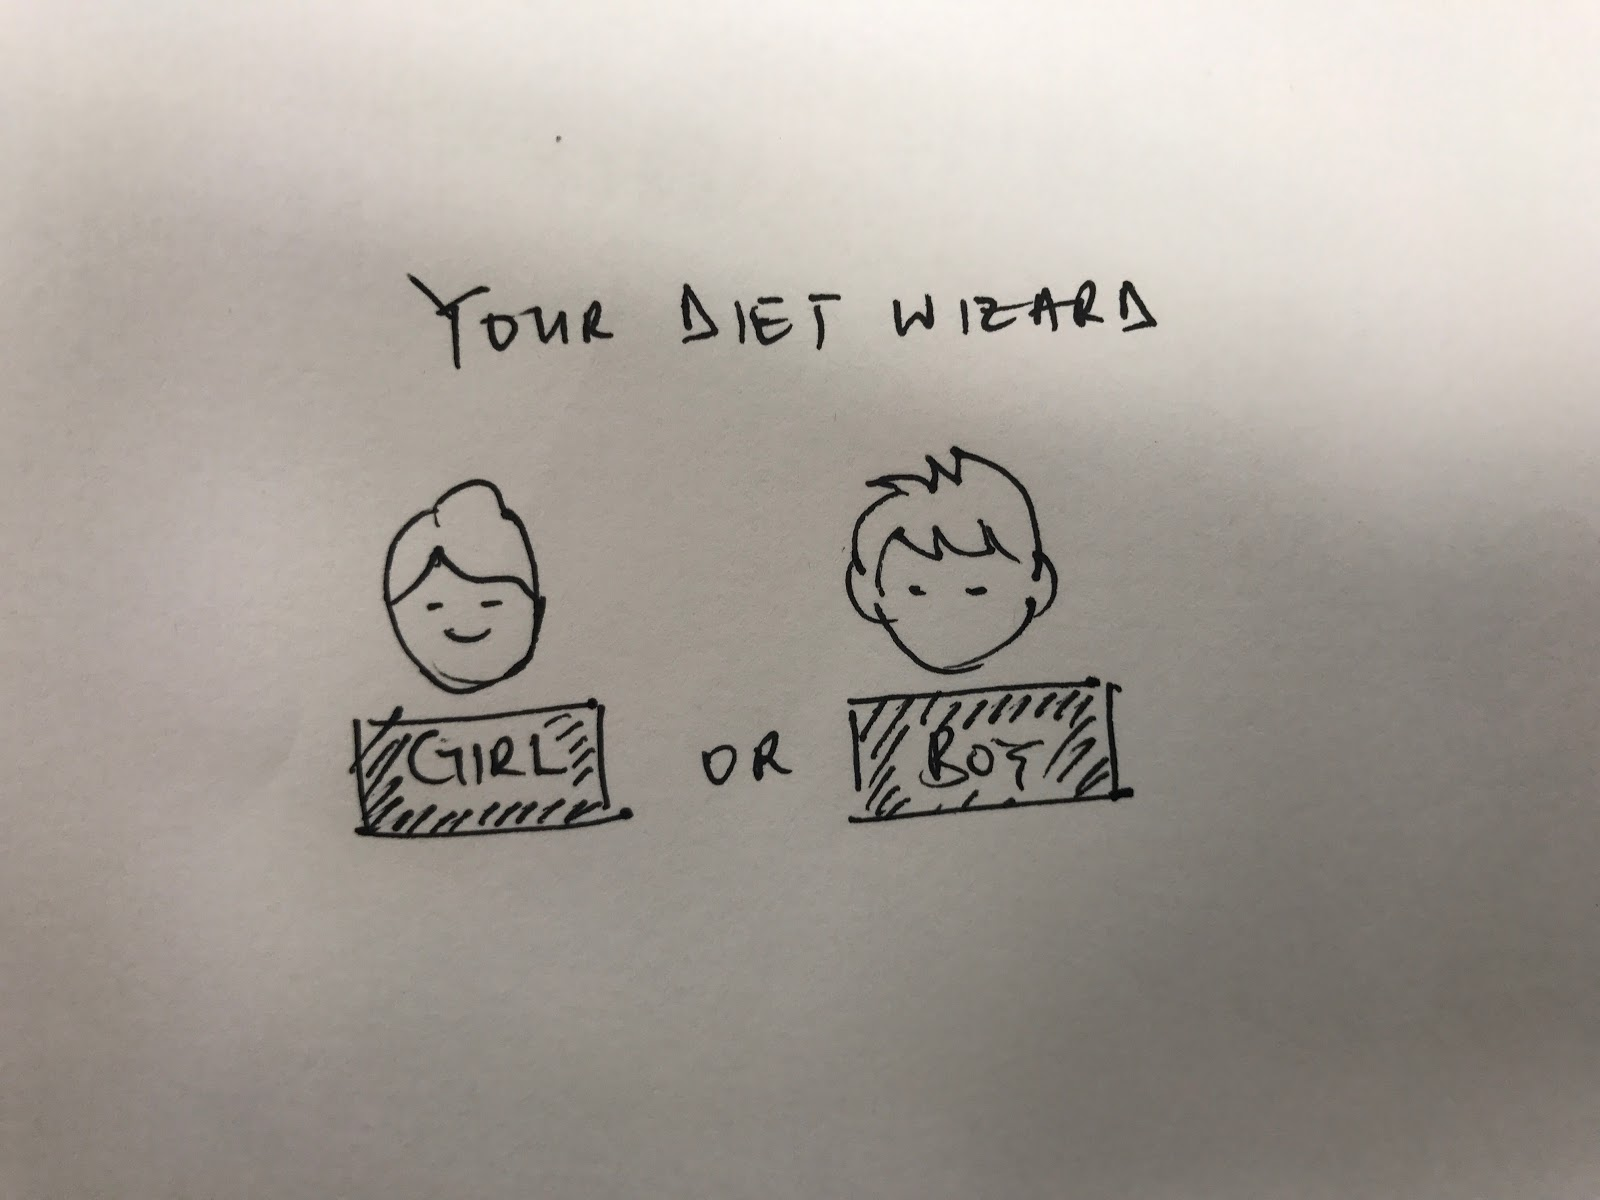 YOUR DIET WIZARD
GIRL OR BOY